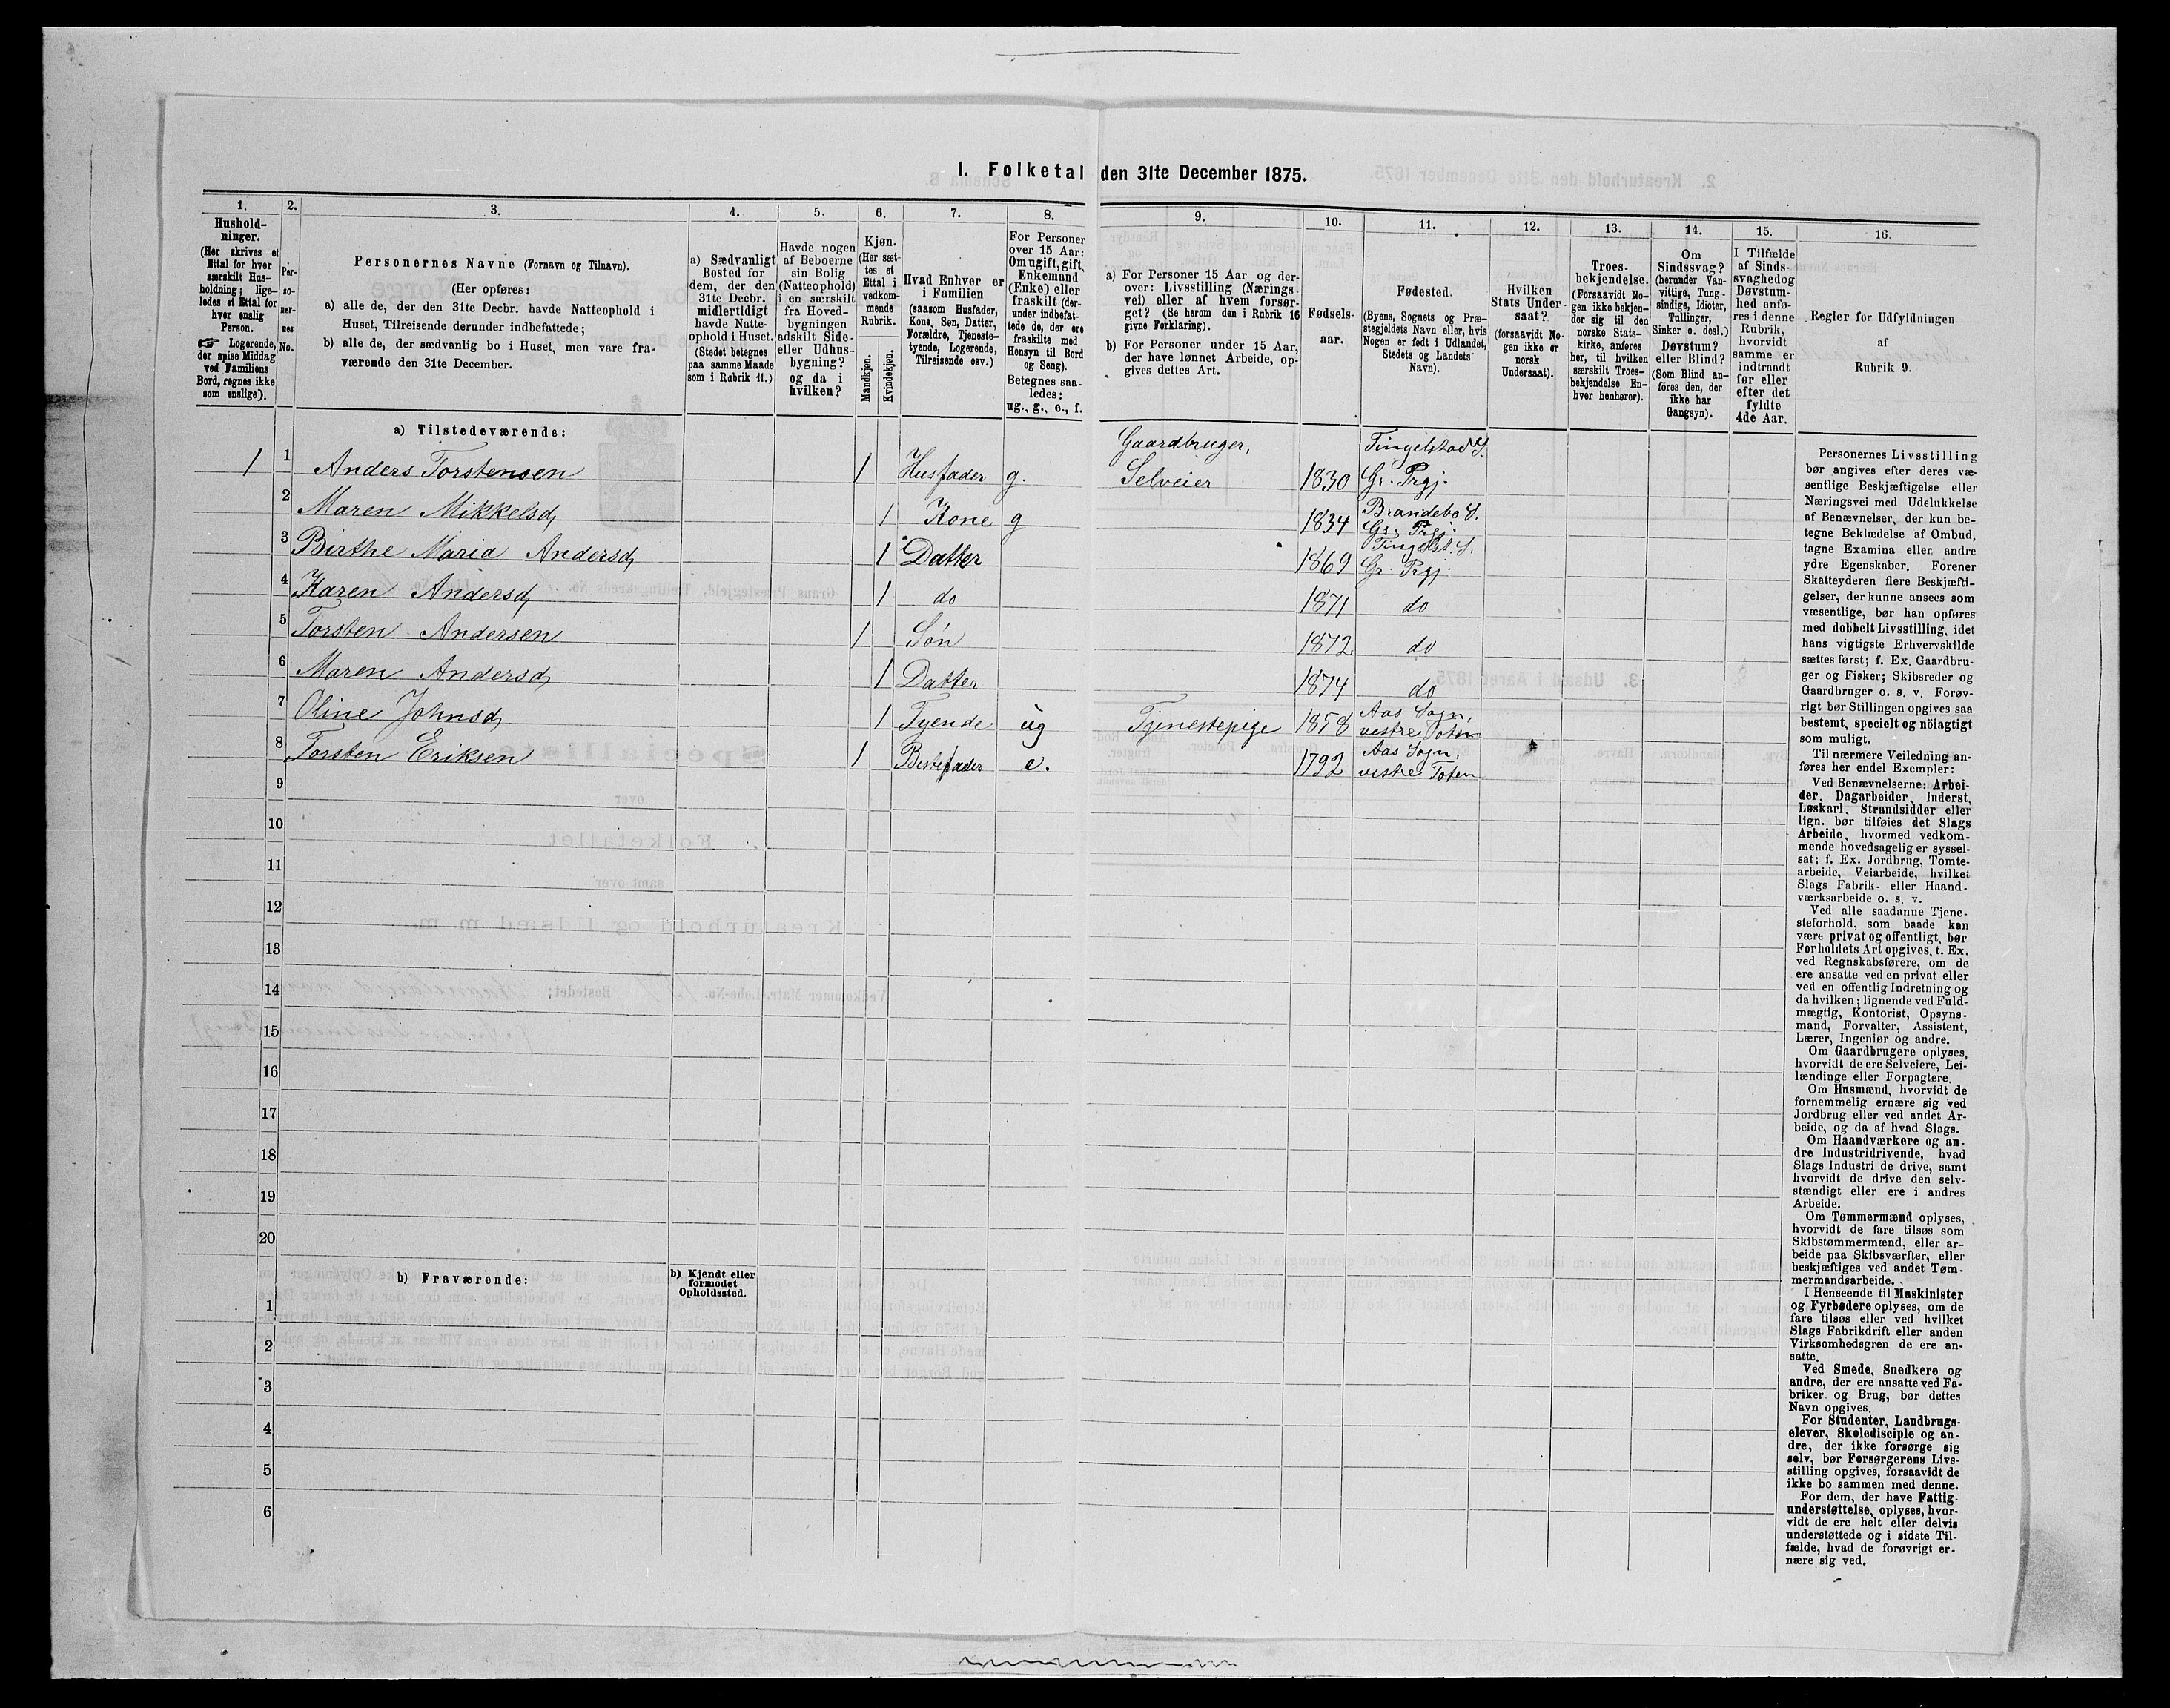 1. Folketal den 31te December 1875.
1.
2.
3.
4.
5.
6.
7.
8.
9.
10.
11.
12.
13.
14.
15.
16.
Hushold-
ninger.
(Her skrives et
Ettal for hver
særskilt Hus-
holdning; lige-
ledes et Ettal for
hver enslig
Person.
☞ Logerende,
der spise Middag
ved Familiens
Bord, regnes ikke
som enslige).
Per-
so-
ner-
nes
No.
Personernes Navne (Fornavn og Tilnavn).
(Her opføres:
a) alle de, der den 31te Decbr. havde Natteophold i
Huset, Tilreisende derunder indbefattede;
b) alle de, der sædvanlig bo i Huset, men vare fra-
værende den 31te December.
a) Sædvanligt
Bosted for
dem, der den
31te Decbr.
midlertidigt
havde Natte-
ophold i Huset.
(Stedet betegnes
paa samme Maade
som i Rubrik 11.)
Havde nogen
af Beboerne
sin Bolig
(Natteophold)
i en særskilt
fra Hoved-
bygningen
adskilt Side-
eller Udhus-
bygning?
og da i
hvilken?
Kjøn.
(Her sæt-
tes et
Ettal i
vedkom-
mende
Rubrik.
Mandkjøn.
Kvindekjøn.
Hvad Enhver er
i Familien
(saasom Husfader,
Kone, Søn, Datter,
Forældre, Tjeneste-
tyende, Logerende,
Tilreisende osv.)
For Personer
over 15 Aar:
Om ugift, gift,
Enkemand
(Enke) eller
fraskilt (der-
under indbefat-
tede de, der ere
fraskilte med
Hensyn til Bord
og Seng).
Betegnes saa-
ledes:
ug., g., e., f.
a) For Personer 15 Aar og der-
over: Livsstilling (Nærings-
vei) eller af hvem forsør-
get? (Se herom den i Rubrik 16
givne Forklaring).
b) For Personer under 15 Aar,
der have lønnet Arbeide, op-
gives dettes Art.
Fødsels-
aar.
Fødested.
(Byens, Sognets og Præ-
stegjeldets Navn eller, hvis
Nogen er født i Udlandet,
Stedets og Landets
Navn).
Hvilken
Stats Under-
saat?
(forsaavidt No-
gen ikke er
norsk
Undersaat).
Troes-
bekjendelse.
(Forsaavidt No-
gen ikke bekjen-
der sig til den
norske Stats-
kirke, anføres
her, til hvilken
særskilt Troes-
bekjendelse En-
hver henhører).
Om
Sindssvag?
(herunder Van-
vittige, Tung-
sindige, Idioter,
Tullinger,
Sinker o. desl.)
Døvstum?
eller Blind?
(Som Blind an-
föres den, der
ikke har
Gangsyn).
I Tilfælde
af Sinds-
svaghedog
Døvstum-
hed anfø-
res i denne
Rubrik,
hvorvidt
samme er
indtraadt
før eller
efter det
fyldte
4de Aar.
Regler for Udfyldningen
af
Rubrik 9.
a) Tilstedeværende:
Gaardbruger, Tingelstad S.
1 1 Anders Torstensen 1 Husfader g. Selveier 1830 Gr. Prgj.
Brandebo S.
2 Maren Mikkelsd, 1 Kone g 1834 Gr. Prgj.
Tingelst. S.
3 Birthe Maria Andersd, 1 Datter 1869 Gr. Prgj.
4 Karen Andersd, 1 do 1871 do
5 Torsten Andersen 1 Søn 1872 do
6 Maren Andersd, 1 Datter 1874 do
Aas Sogn,
7 Oline Johnsd, 1 Tyende ug Tjenestepige 1858 vestre Toten
Aas Sogn,
8 Torsten Eriksen 1 e. 1792 vestre Toten
9
10
11
12
13
14
15
16
17
18
19
20
b) Fraværende:
b) Kjendt eller
formodet
Opholdssted.
1
2
3
4
5
6
Personernes Livsstilling
bør angives efter deres væ-
sentlige Beskjæftigelse eller
Næringsvei med Udelukkelse
af Benævnelser, der kun be-
tegne Beklædelse af Ombud,
tagne Examina eller andre
ydre Egenskaber. Forener
Skatteyderen flere Beskjæfti-
gelser, der kunne ansees som
væsentlige, bør han opføres
med dobbelt Livsstilling, idet
hans vigtigste Erhvervskilde
sættes først; f. Ex. Gaardbru-
ger og Fisker; Skibsreder og
Gaardbruger o. s. v. Forøv-
rigt bør Stillingen opgives saa
bestemt, specielt og nöiagtigt
som muligt.
Til nærmere Veiledning an-
føres her endel Exempler:
Ved Benævnelserne: Arbei-
der, Dagarbeider, Inderst,
Løskarl, Strandsidder eller
lign. bør tilføies det Slags
Arbeide, hvormed vedkom-
mende hovedsagelig er syssel-
sat; f. Ex. Jordbrug, Tomte-
arbeide, Veiarbeide, hvilket
Slags Fabrik- eller Haand-
værksarbeide o. s. v.
Ved alle saadanne Tjene-
steforhold, som baade kan
være privat og offentligt, bør
Forholdets Art opgives, t. Ex.
ved Regnskabsførere, om de
ere ansatte ved en privat eller
ved en offentlig Indretning og
da hvilken; lignende ved Fuld-
mægtig, Kontorist, Opsyns-
mand, Forvalter, Assistent,
Lærer, Ingeniør og andre.
Om Gaardbrugere oplyses,
hvorvidt de ere Selveiere, Lei-
lændinge eller Forpagtere.
Om Husmænd, hvorvidt de
fornemmelig ernære sig ved
Jordbrug eller ved andet Ar-
beide, og da af hvad Slags.
Om Haandværkere og an-
dre Industridrivende, hvad
Slags Industri de drive, samt
hvorvidt de drive den selv-
stændigt eller ere i andres
Arbeide.
Om Tømmermænd oplyses,
hvorvidt de fare tilsøs som
Skibstømmermænd, eller ar-
beide paa Skibsværfter, eller
beskjæftiges ved andet Tøm-
mermandsarbeide.
I Henseende til Maskinister
og Fyrbødere oplyses, om de
fare tilsøs eller ved hvilket
Slags Fabrikdrift eller anden
Virksomhedsgren de ere an-
satte.
Ved Smede, Snedkere og
andre, der ere ansatte ved Fa-
briker og Brug, bør dettes
Navn opgives.
For Studenter, Landbrugs-
elever, Skoledisciple og an-
dre, der ikke forsørge sig
selv, bør Forsørgerens Livs-
stilling opgives, forsaavidt de
ikke bo sammen med denne.
For dem, der have Fattig-
understøttelse, oplyses, hvor-
vidt de ere helt eller delvis
understøttede og i sidste Til-
fælde, hvad de forøvrigt er-
nære sig ved.